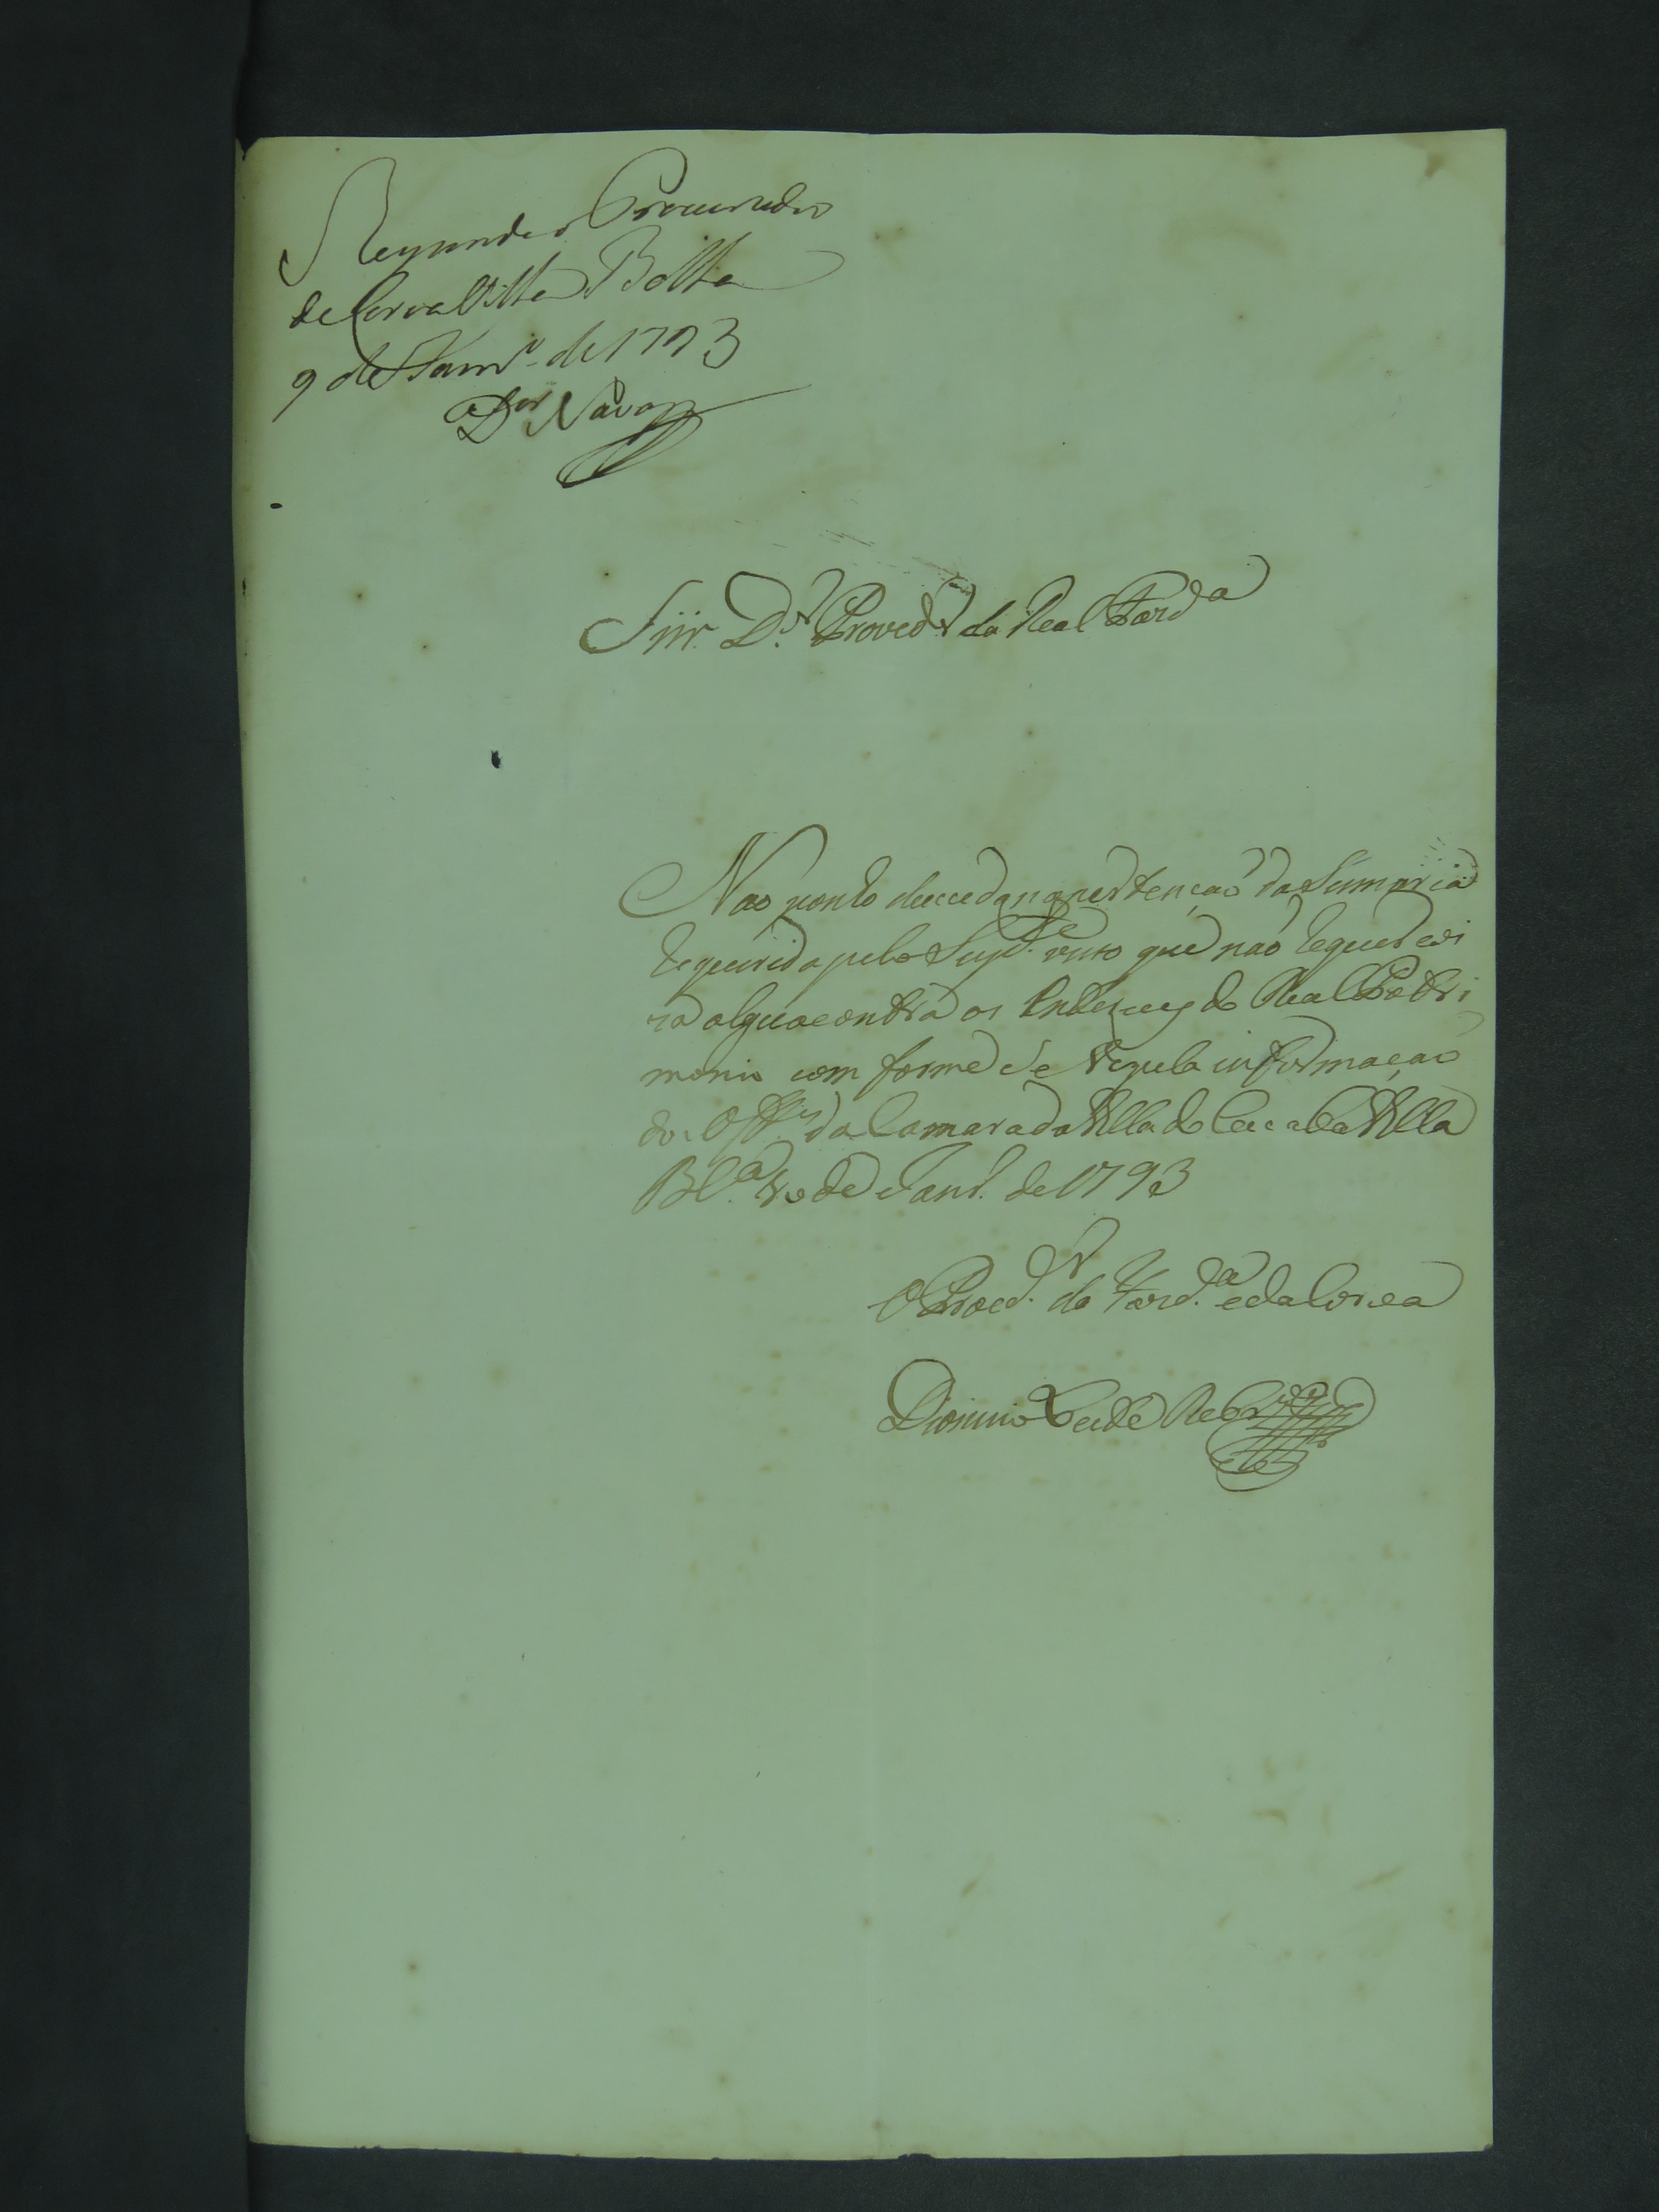 Responda o Procurador
de Coroa Villa Bella
9 de Jan.ro de 1793
D.or Navarro
Snr. D.r Proved.r da Real Fazd.a
Nao ponho duvida na pertençaõ da Sismaria
requerida pelo Sup.te visto que naõ requer coi
za algua contra os Enteresses do Real Patri
monio comforme se ve pela informaçaõ
dos Off.es da Camara da Villa do Cuiaba Villa
Bl.a 10 de Jan.ro de 1793
O Procd.r da Fazd.a e da Coroa
Dionizio Leite Rebr.o